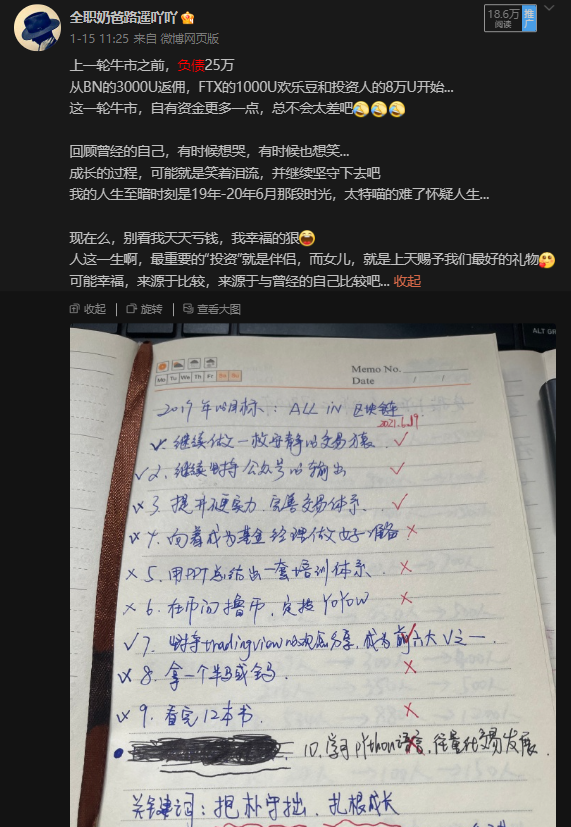 全职奶爸路遥吖吖
18.6万
阅读
推广
1-15 11:25 来自 微博网页版
上一轮牛市之前，负债25万
从BN的3000U返佣，FTX的1000U欢乐豆和投资人的8万U开始...
这一轮牛市，自有资金更多一点，总不会太差吧
回顾曾经的自己，有时候想哭，有时候也想笑...
成长的过程，可能就是笑着泪流，并继续坚守下去吧
我的人生至暗时刻是19年-20年6月那段时光，太特喵的难了怀疑人生...
现在么，别看我天天亏钱，我幸福的狠
人这一生啊，最重要的“投资”就是伴侣，而女儿，就是上天赐予我们最好的礼物
可能幸福，来源于比较，来源于与曾经的自己比较吧... 收起
收起 旋转 查看大图
ALT GR
Memo No.
Mo Tu We Th Fr Sa Su
Date / /
2019年的目标：ALL IN 区块链
2021.6.19
1. 继续做一枚安静的交易方裹 ✓
✓ 2. 继续坚持公众号的输出 ✓
✓× 3. 提升硬实力，完善交易体系. ✓
✓× 4. 向着成为基金经理做好准备 ×
× 5. 用PPT总结出一套培训体系. ×
× 6. 在币问撸币，定投YOYOW ×
✓ 7. 坚持tradingview的观点分享，成为前六大V之一.
✓× 8. 拿一个半马或全马. ×
✓× 9. 看完12本书. ×
10. 学习python语言，往量化交易发展.
关键词：抱朴守拙、扎根成长